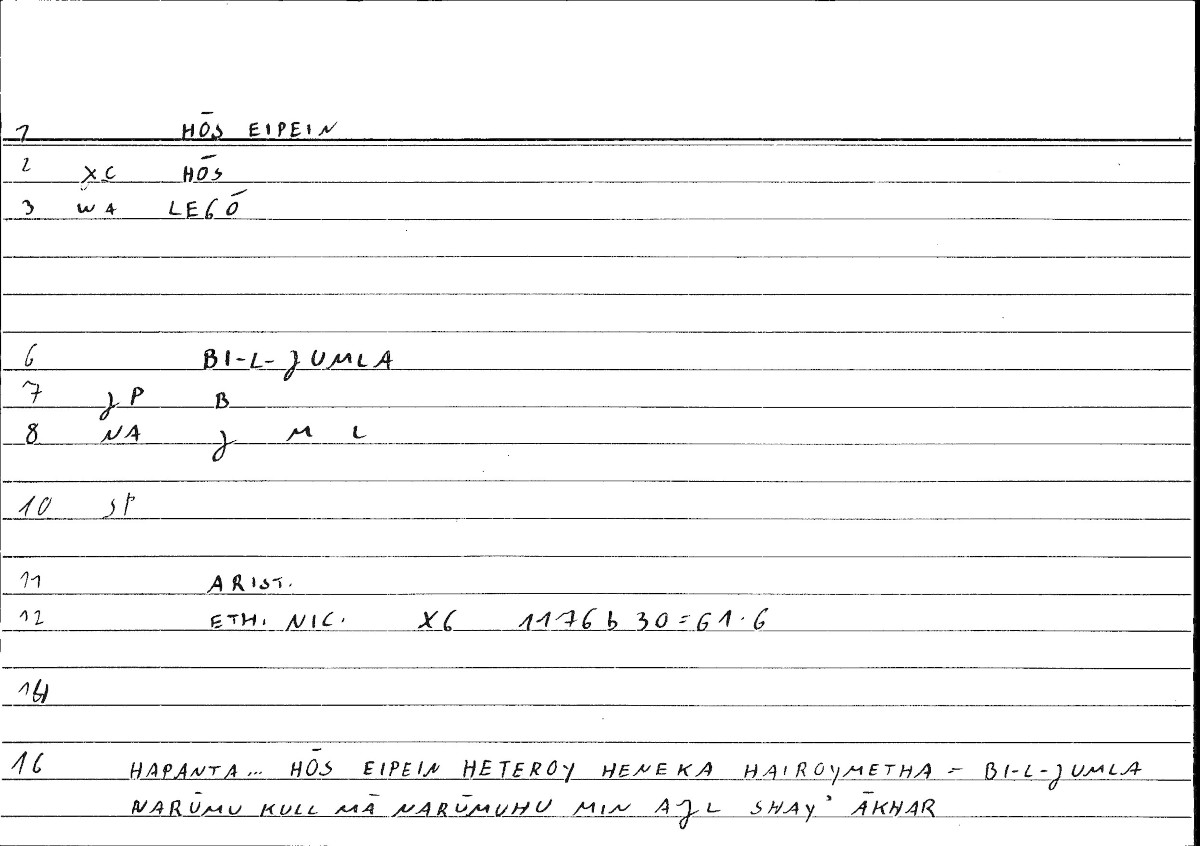 1 HŌS EIPEIN
2 XC HŌS
3 WA LEGŌ
6 BI-L-JUMLA
7 JP B
8 NA J M L
10 SP
11 ARIST.
12 ETH. NIC. X6 1176 b 30 = 61.6
14
16 HAPANTA... HŌS EIPEIN HETEROY HENEKA HAIROYMETHA = BI-L-JUMLA
NARŪMU KULL MĀ NARŪMUHU MIN AJL SHAY' ĀKHAR